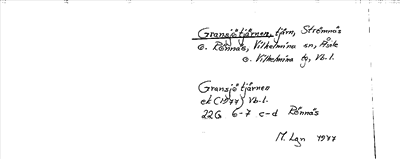 Gransjötjärnen, tjärn, Strömnäs
o. Rönnäs, Vilhelmina sn, Åsele
o. Vilhelmina tg, Vb. l.
Gransjötjärnen
ek (1977) Vb. l.
22G 6-7 c-d Rönnäs
M. Lgn 1977